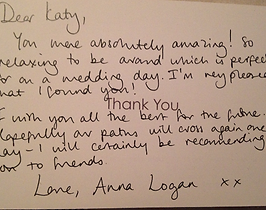 Dear Katy,
You were absolutely amazing! So
relaxing to be around which is perfect
for on a wedding day. I'm very pleased
that I found you!
Thank You
I wish you all the best for the future.
Hopefully our paths will cross again one
day - I will certainly be recommending
you to friends.
Love, Anna Logan xx